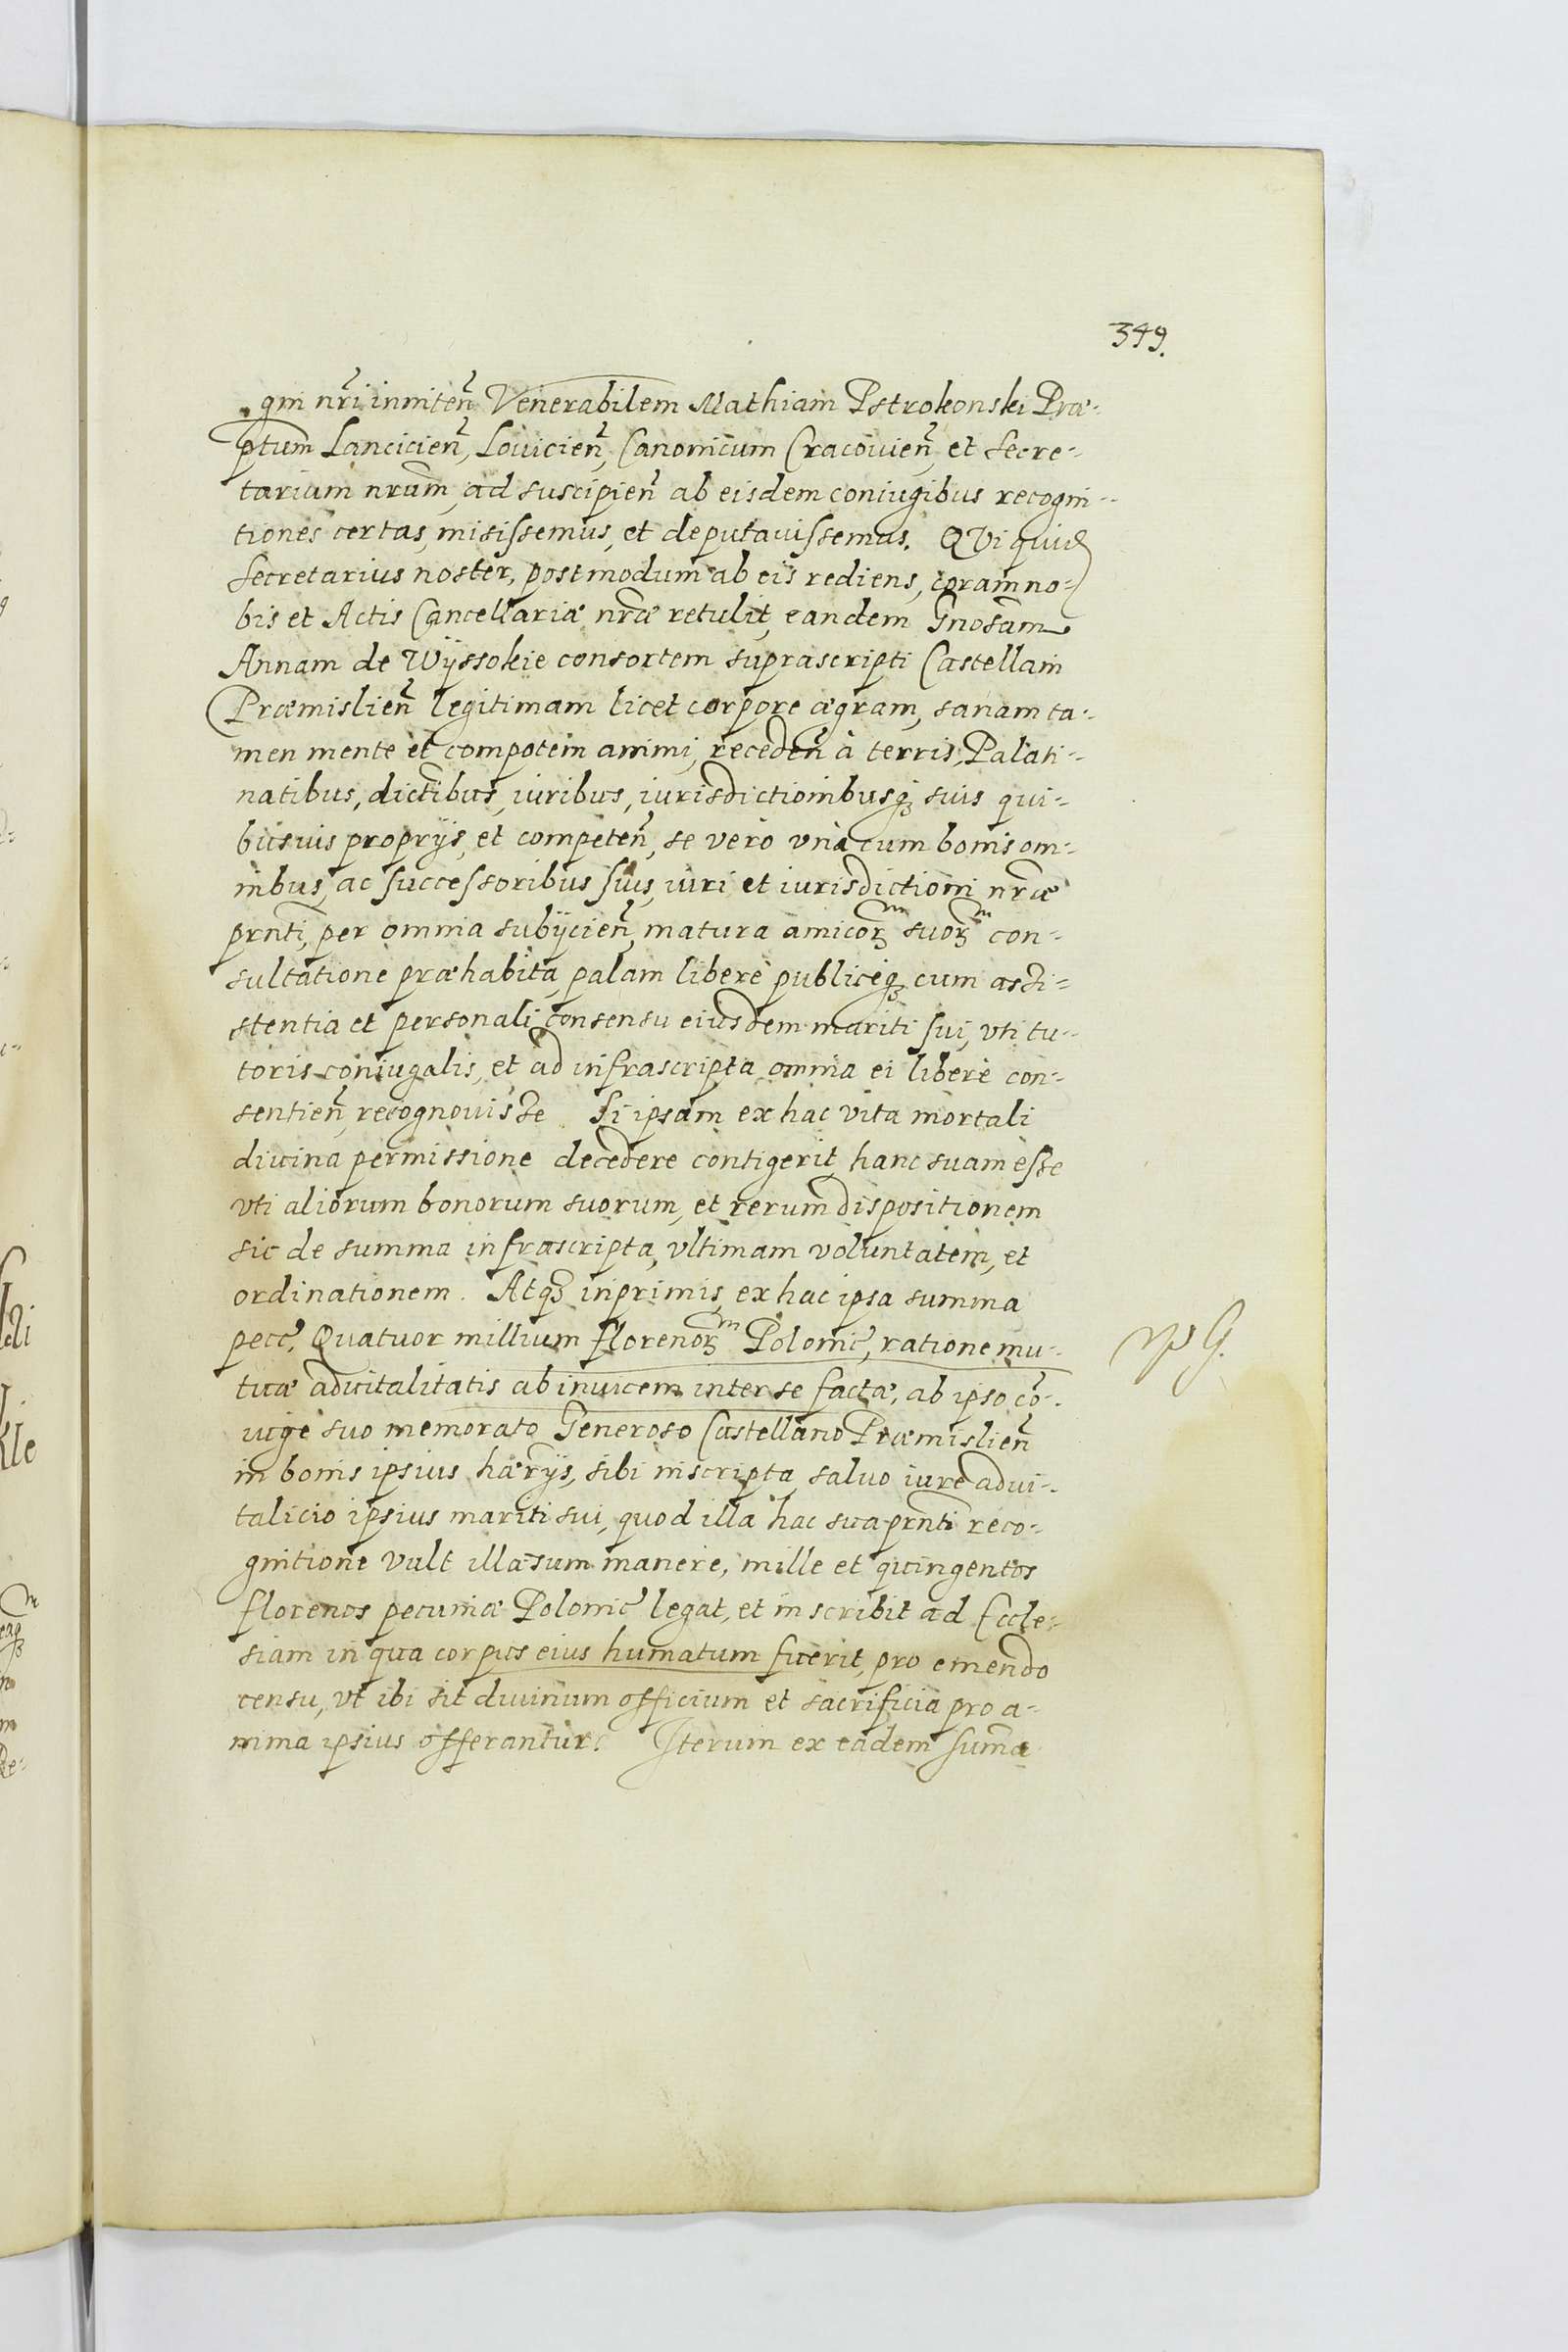 349.
gni nr̃i inniten̄ Venerabilem Mathiam Pstrokonski Præ-
ptum Lancicien̄, Louicien̄, Canonicum Cracouien̄, et Secre-
tarium nrũm, ad suscipien̄ ab eisdem coniugibus recogni-
tiones certas, misissemus, et deputauissemus. QVi quid
Secretarius noster, postmodum ab eis rediens, coram no-
bis et Actis Cancellariæ nræ̃ retulit, eandem Gnosãm
Annam de Wÿssokie consortem suprascripti Castellani
Præmislien̄ legitimam licet corpore ægram, sanam ta-
men mente et compotem animi, receden̄ à terris, Palati-
natibus, dictĩbus, iuribus, iurisdictionibusq₃ suis qui-
busuis proprijs, et competen̄, se vero vnà cum bonis om-
nibus, ac successoribus suis, iuri et iurisdictioni nræ̃
prñti, per omnia subÿcien̄, matura amicorᵐ suorᵐ con-
sultatione præhabita, palam liberè publiceq₃ cum assi-
stentia et personali consensu eiusdem mariti sui, vti tu-
toris coniugalis, et ad infrascripta omnia ei liberè con-
sentien̄, recognouisse. Si ipsam ex hac vita mortali
diuina permissione decedere contigerit, hanc suam esse
vti aliorum bonorum suorum, et rerum dispositionem
sic de summa infrascripta, vltimam voluntatem, et
ordinationem. Atq₃ inprimis, ex hac ipsa summa
pecc̃, Quatuor millium florenorᵐ Polonic̃, ratione mu-
tuæ aduitalitatis ab inuicem inter se factæ, ab ipso cõ-
iuge suo memorato Generoso Castellano Præmislien̄
in bonis ipsius hærijs, sibi inscripta, saluo iure adui-
talicio ipsius mariti sui, quod illa hac sua prñti reco-
gnitione vult illæsum manere, mille et quingentos
florenos pecuniæ Polonic̃ legat, et inscribit ad Eccle-
siam in qua corpus eius humatum fuerit, pro emendo
censu, vt ibi sit diuinum officium et sacrificia pro a-
nima ipsius offerantur. Iterum ex eadem sum̃a